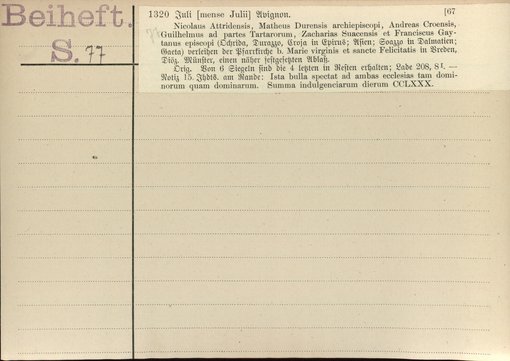 Beiheft.
S. 77
1320 Juli [mense Julii] Avignon. [67
Nicolaus Attridensis, Matheus Durensis archiepiscopi, Andreas Croensis,
Guilhelmus ad partes Tartarorum, Zacharias Suacensis et Franciscus Gay-
tanus episcopi (Ochrida, Durazzo, Croja in Epirus; Asien; Soazzo in Dalmatien;
Gaeta) verleihen der Pfarrkirche b. Marie virginis et sancte Felicitatis in Vreden,
Diöz. Münster, einen näher festgesetzten Ablaß.
Orig. Von 6 Siegeln sind die 4 letzten in Resten erhalten; Lade 208, 8¹. —
Notiz 15. Jhdts. am Rande: Ista bulla spectat ad ambas ecclesias tam domi-
norum quam dominarum. Summa indulgenciarum dierum CCLXXX.